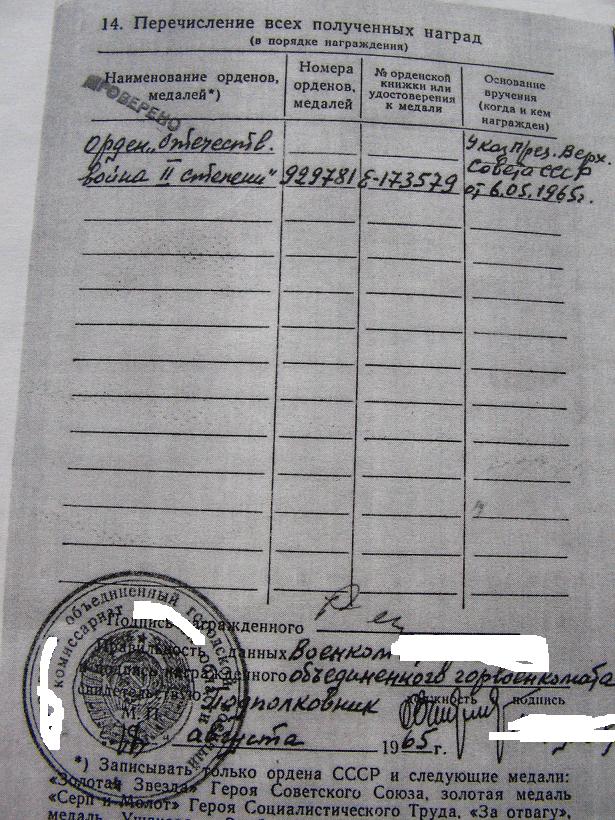 14. Перечисление всех полученных наград
(в порядке награждения)
Наименование орденов, медалей*)
Номера орденов, медалей
№ орденской книжки или удостоверения к медали
Основание вручения (когда и кем награжден)
ПРОВЕРЕНО
Орден „Отечеств.
война II степени"
929781
Е-173579
Указ През. Верх.
Совета СССР
от 6.05.1965г.
Подпись награжденного
Правильность данных Военком
и подпись награжденного объединенного горвоенкомата
свидетельствую: должность подпись
подполковник
М. П.
августа 1965 г.
объединенный городской
комиссариат
*) Записывать только ордена СССР и следующие медали:
«Золотая Звезда» Героя Советского Союза, золотая медаль
«Серп и Молот» Героя Социалистического Труда, «За отвагу»,